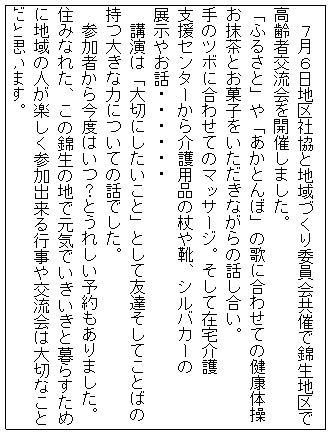 ７月６日地区社協と地域づくり委員会共催で錦生地区で
高齢者交流会を開催しました。
「ふるさと」や「あかとんぼ」の歌に合わせての健康体操
お抹茶とお菓子をいただきながらの話し合い。
手のツボに合わせてのマッサージ。そして在宅介護
支援センターから介護用品の杖や靴、シルバカーの
展示やお話・・・・・
講演は「大切にしたいこと」として友達そしてことばの
持つ大きな力についての話でした。
参加者から今度はいつ？とうれしい予約もありました。
住みなれた、この錦生の地で元気でいきいきと暮らすため
に地域の人が楽しく参加出来る行事や交流会は大切なこと
だと思います。